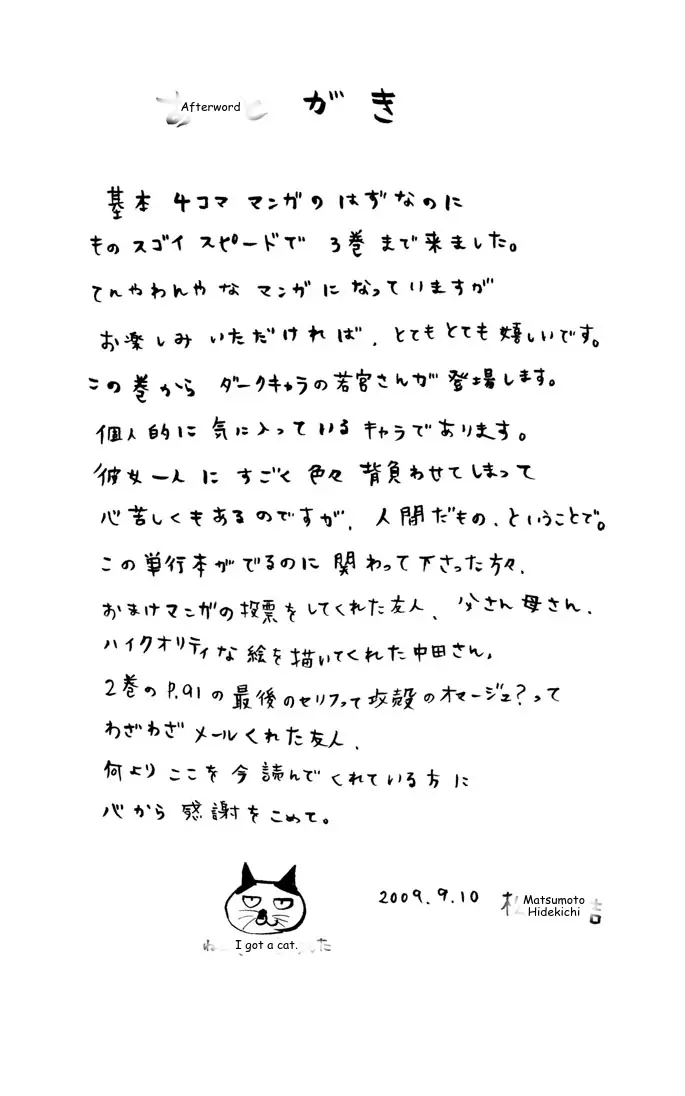 Afterword がき
基本 4コマ マンガの はずなのに
ものスゴイ スピードで 3巻 まで来ました。
てんやわんや な マンガ に なっていますが
お楽しみ いただければ、とてもとても嬉しいです。
この巻から ダークキャラの若宮さんが 登場します。
個人的に 気に入っている キャラであります。
彼女一人 に すごく 色々 背負わせてしまって
心苦しくもあるのですが、人間だもの、ということで。
この単行本がでるのに 関わって下さった方々、
おまけマンガの投票をしてくれた友人、父さん 母さん、
ハイクオリティな 絵を描いてくれた中田さん、
2巻の P.91の最後のセリフって攻殻のオマージュ?って
わざわざ メールくれた友人、
何より ここを 今 読んで くれている方に
心から 感謝をこめて。
2009.9.10 松 Matsumoto Hidekichi 吉
I got a cat.